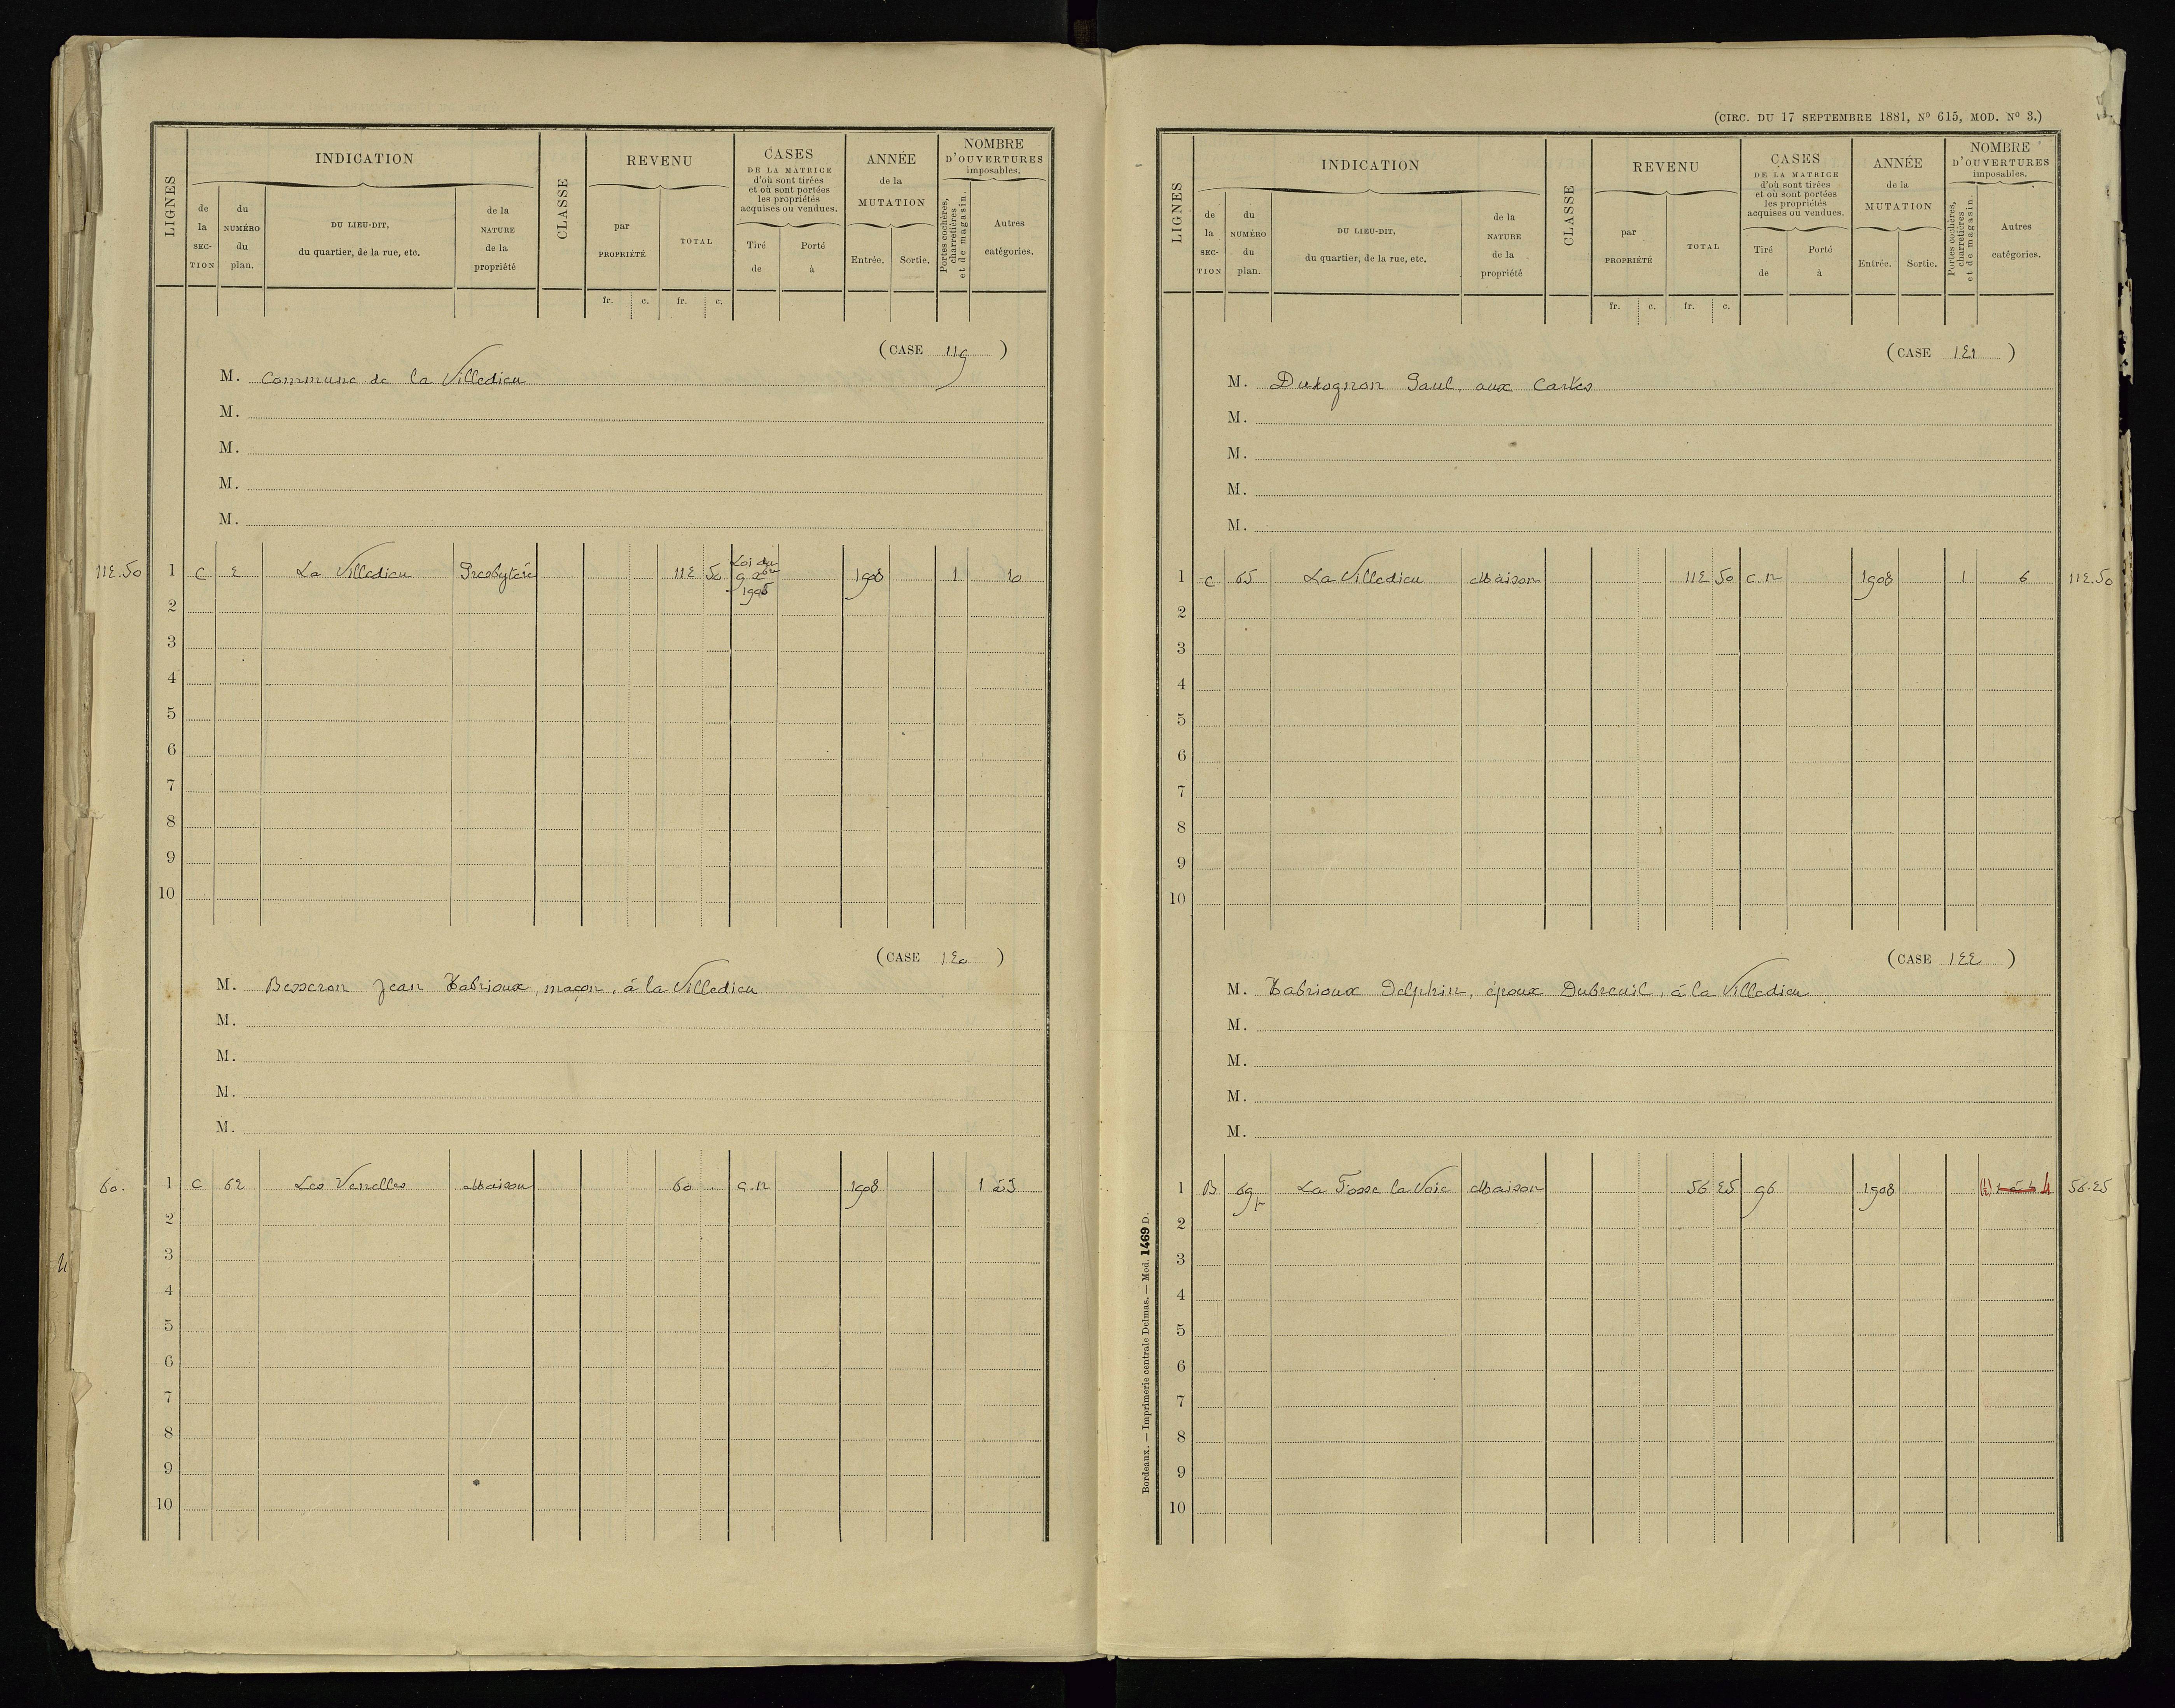 LIGNES
INDICATION
de la SECTION
du NUMÉRO du plan.
DU LIEU-DIT, du quartier, de la rue, etc.
de la NATURE de la propriété
CLASSE
REVENU
par PROPRIÉTÉ
TOTAL
fr. c. fr. c.
CASES DE LA MATRICE d'où sont tirées et où sont portées les propriétés acquises ou vendues.
Tiré de
Porté à
ANNÉE de la MUTATION
Entrée. Sortie.
NOMBRE D'OUVERTURES imposables.
Portes cochères, charretières et de magasin.
Autres catégories.
(CASE 119)
M. Commune de la Villedieu
M.
M.
M.
M.
112.50 1 C 2 La Villedieu Presbytère 112 50 Loi du 9 xbre 1905 1908 1 10
2
3
4
5
6
7
8
9
10
(CASE 120)
M. Besseron Jean Habrioux, maçon, à la Villedieu
M.
M.
M.
M.
60. 1 C 62 Les Venelles Maison 60 . C.n 1908 1 à 3
2
3
4
5
6
7
8
9
10
(CIRC. DU 17 SEPTEMBRE 1881, Nº 615, MOD. Nº 3.)
LIGNES
INDICATION
de la SECTION
du NUMÉRO du plan.
DU LIEU-DIT, du quartier, de la rue, etc.
de la NATURE de la propriété
CLASSE
REVENU
par PROPRIÉTÉ
TOTAL
fr. c. fr. c.
CASES DE LA MATRICE d'où sont tirées et où sont portées les propriétés acquises ou vendues.
Tiré de
Porté à
ANNÉE de la MUTATION
Entrée. Sortie.
NOMBRE D'OUVERTURES imposables.
Portes cochères, charretières et de magasin.
Autres catégories.
(CASE 121)
M. Dutognon Paul, aux Cartes
M.
M.
M.
M.
1 C 65 La Villedieu Maison 112 50 C.n 1908 1 6 112.50
2
3
4
5
6
7
8
9
10
(CASE 122)
M. Habrioux Delphin, époux Dubreuil, à la Villedieu
M.
M.
M.
M.
1 B 69p La Fosse la Voie Maison 56 25 96 1908 4 56.25
2
3
4
5
6
7
8
9
10
Bordeaux. — Imprimerie centrale Delmas. — Mod. 1469 D.